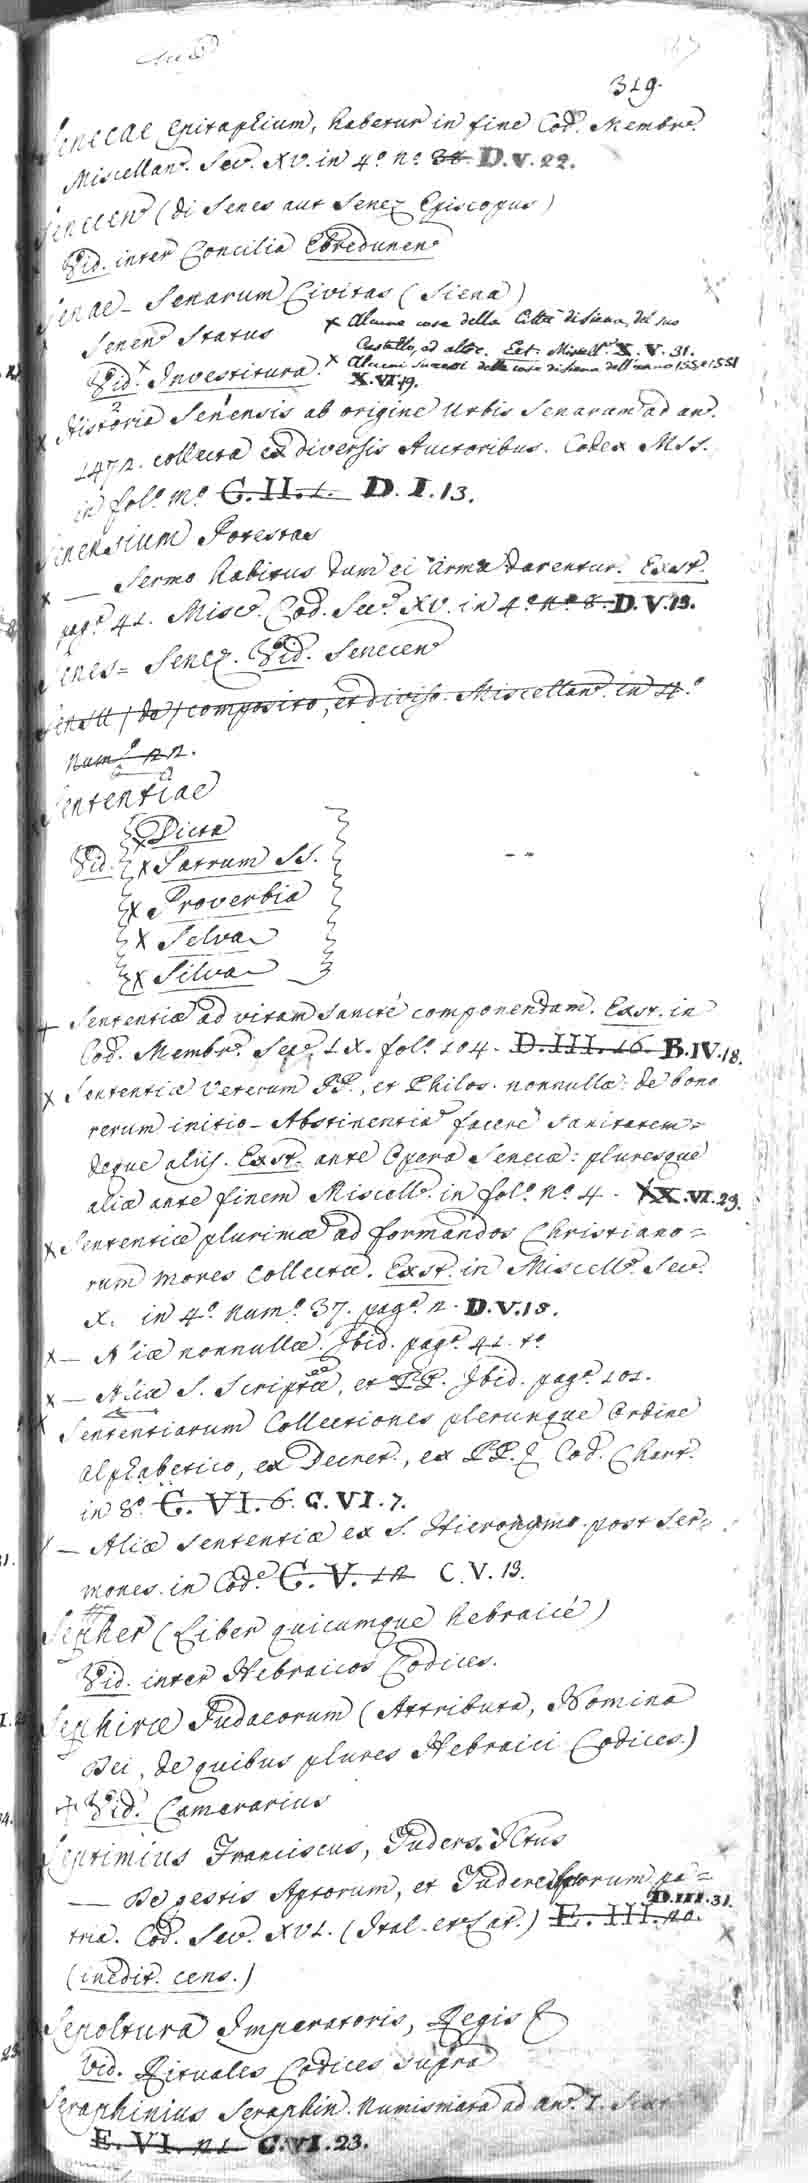 319.
Senecae Epitaphium, habetur in fine Cod. Membr.
Miscellan. Sec. XV. in 4.º nº 38. D.V.22.
Senecen (di Senes aut Senez Episcopus)
Vid. inter Concilia Ebredunen.
Senae - Senarum Civitas (Siena)
Senen. Status
x Alcune cose della Città di Siena, del suo
Castello, ed altre. Ext. Miscell. X.V.31.
Vid. x Investitura.
x Alcuni successi delle cose di Siena dell'anno 1550 e 1551
X.VI.19.
x Historia Senensis ab origine Urbis Senarum ad an.
1472. collecta ex diversis Auctoribus. Codex MSS.
in fol.º mº C.II.1. D.I.13.
Senensium Potestas
x — Sermo habitus dum ei arma darentur. Exst.
pag. 41. Misc. Cod. Sec. XV. in 4.º nº 8. D.V.13.
Senes = Senez. Vid. Senecen.
Sensu (de) composito, et diviso. Miscellan. in 4.º
Num.º 22.
Sententiae
Vid.
x Dicta
x Patrum SS.
x Proverbia
x Selva
x Silva
+ Sententiæ ad vitam sancté componendam. Exst. in
Cod. Membr. Sec. IX. fol. 104. D.III.16. B.IV.18.
x Sententiæ Veterum PP., et Philos. nonnullæ: de bono
rerum initio - Abstinentia facere sanitatem =
deque aliis. Exst. ante Opera Senecæ: pluresque
aliæ ante finem Miscell. in fol. nº 4. X.VI.23.
x Sententiæ plurimæ ad formandos Christiano=
rum mores collectæ. Exst. in Miscell. Sec.
X. in 4.º Num.º 37. pag. 2. D.V.18.
x — Aliæ nonnullæ. Ibid. pag. 41. tº
x — Aliæ S. Scripturæ, et PP. Ibid. pag. 101.
x Sententiarum Collectiones plerunque Ordine
alphabetico, ex Decret., ex PP. & Cod. Chart.
in 8.º C.VI.6. C.VI.7.
— Aliæ sententiæ ex S. Hieronymo post Ser=
mones in Cod. C.V.12 C.V.13.
Sepher (Liber quicumque hebraicé)
Vid. inter Hebraicos Codices.
Sephiræ Judaeorum (Attributa, Nomina
Dei, de quibus plures Hebraici Codices.)
+ Vid. Camerarius
Septimius Franciscus, Tuders. JCtus
— De gestis Aptorum, et Tudere eorum pa=
tria. Cod. Sec. XVI. (Ital. et Lat.) E.III.20. D.III.31.
(inedit. cens.)
Sepoltura Imperatoris, Regis &
Vid. Rituales Codices supra
Seraphinius Seraphin. Numismata ad an. I.
E.VI.21 C.VI.23.